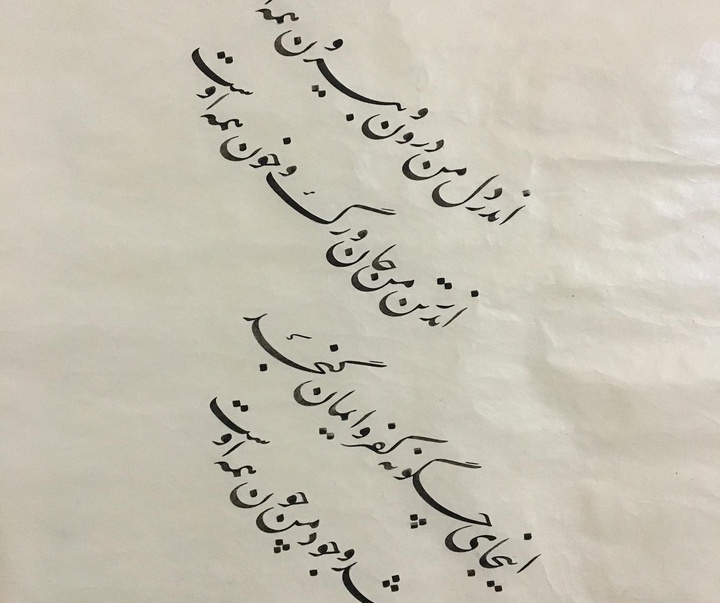 اندر دل من درون و بیرون همه
اندر تن من جان و رگ و خون همه اوست
اینجای چگونه کفر و ایمان گنجد
شد وجود من چون همه اوست